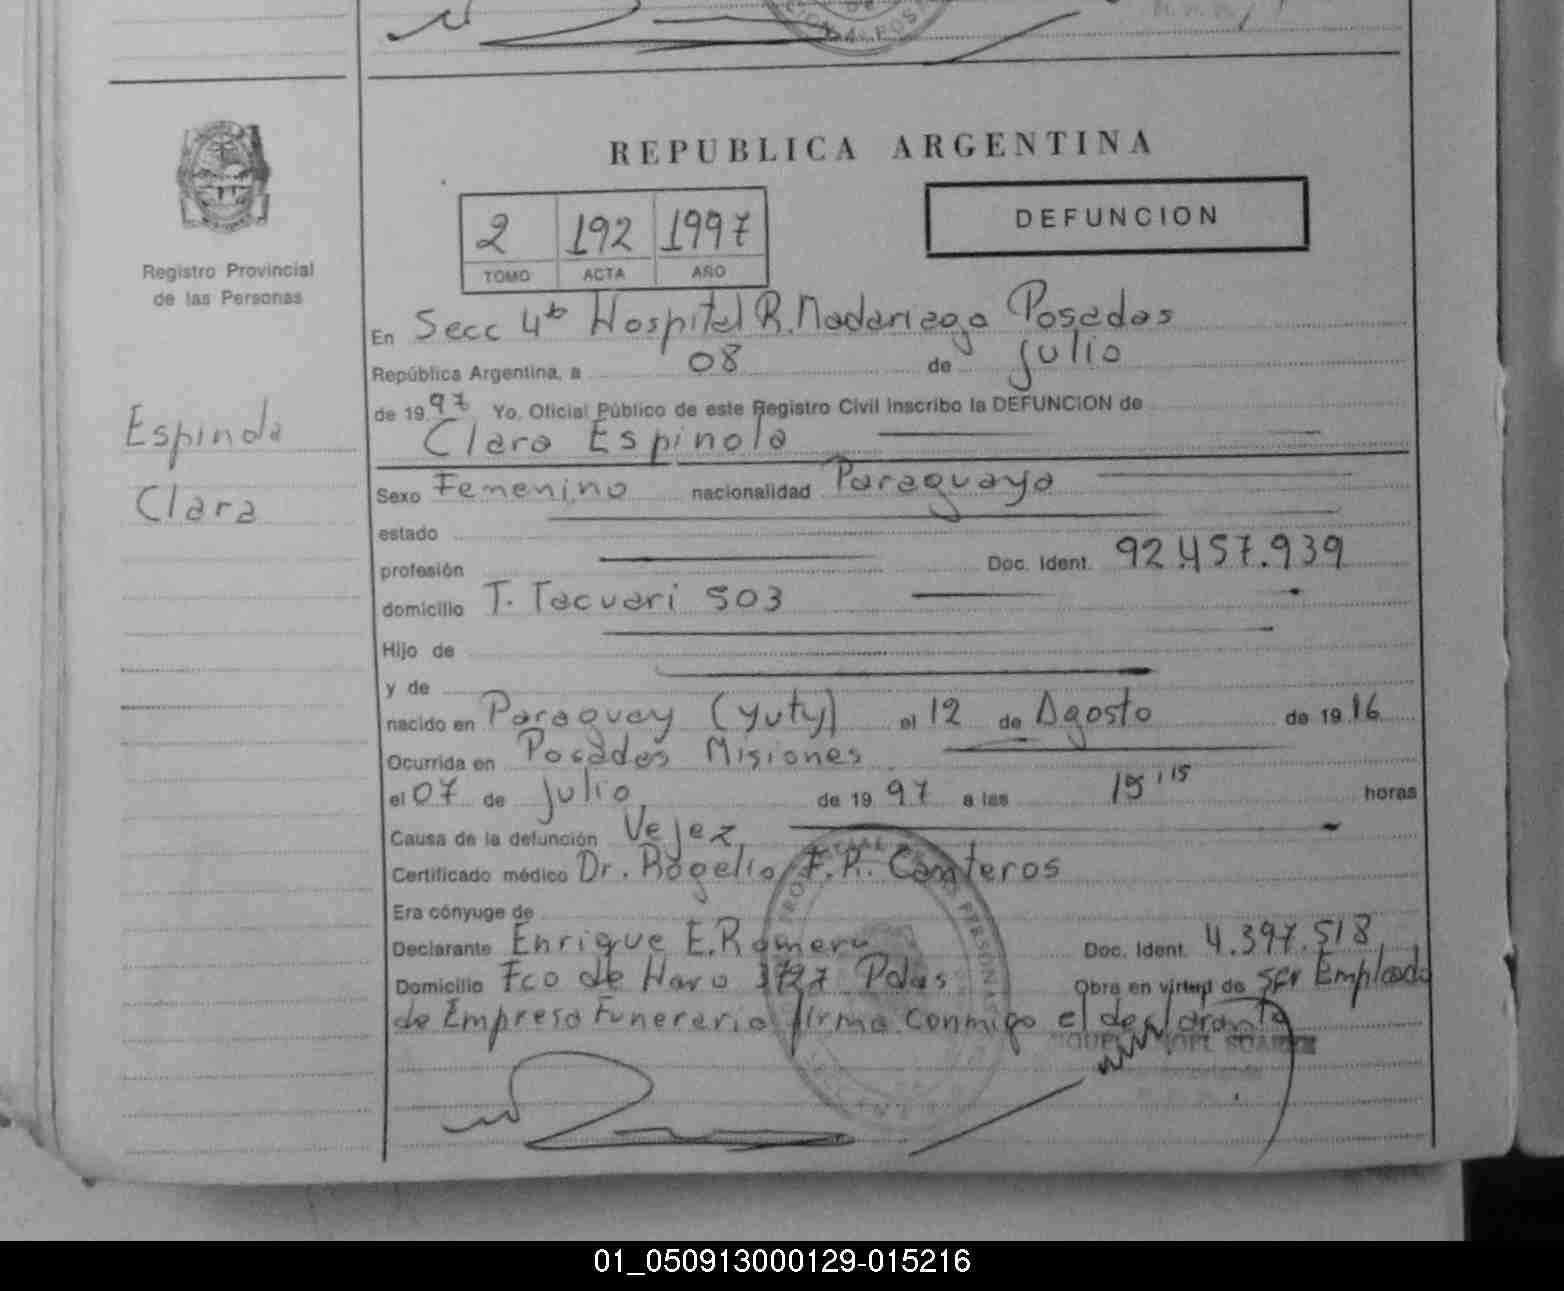 REPUBLICA ARGENTINA
2 192 1997
TOMO ACTA AÑO
DEFUNCION
Registro Provincial
de las Personas
Espinola
Clara
En Secc 4ta Hospital R. Madariaga Posadas
República Argentina, a 08 de julio
de 19 97 Yo, Oficial Público de este Registro Civil inscribo la DEFUNCION de
Clara Espinola
Sexo Femenino nacionalidad Paraguaya
estado
profesión Doc. Ident. 92.457.939
domicilio T. Tacuari 503
Hijo de
y de
nacido en Paraguay (yuty) el 12 de Agosto de 19 16
Ocurrida en Posadas Misiones
el 07 de julio de 19 97 a las 15,15 horas
Causa de la defunción Vejez
Certificado médico Dr. Rogelio F.R. Canteros
Era cónyuge de
Declarante Enrique E. Romero Doc. Ident. 4.397.518
Domicilio Fco de Haro 3727 Pdas Obra en virtud de ser Empleado
de Empresa Funeraria firma conmigo el declarante
01_050913000129-015216